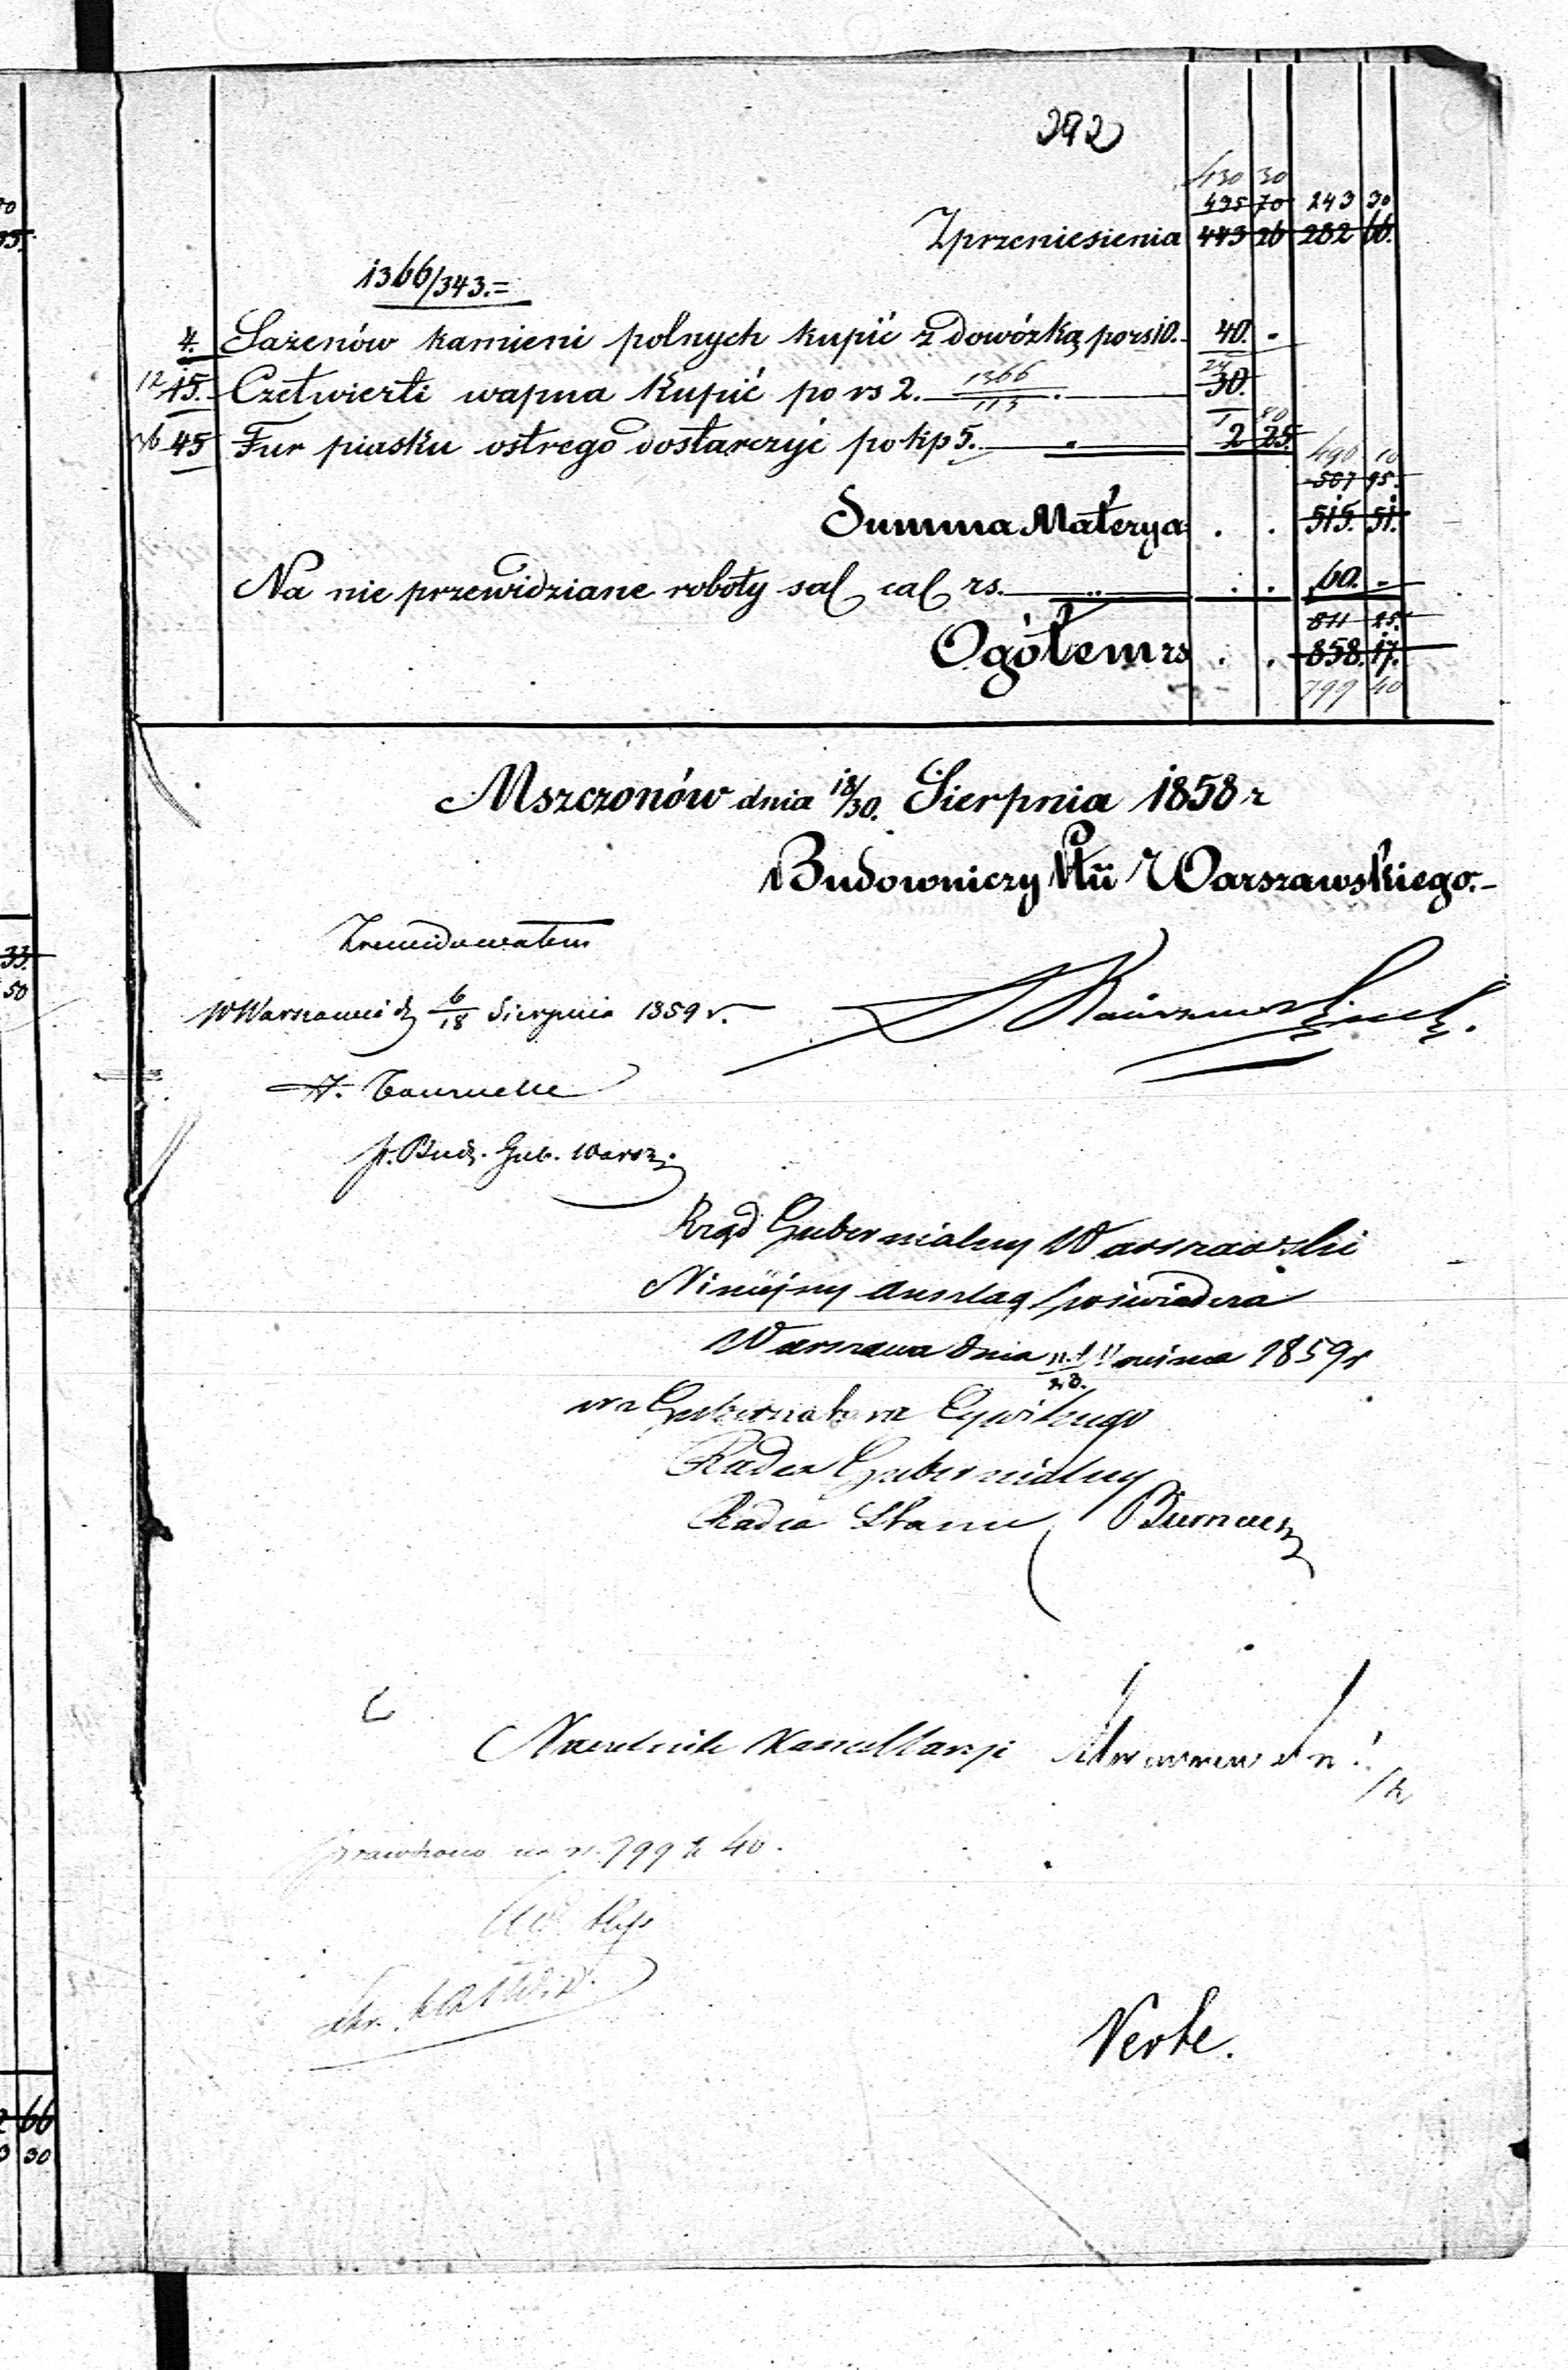 292
430 30
435 70 243 30
Zprzeniesienia 443 26 282 66.
1366/343.=
4. Sażenów kamieni polnych kupić z dowózką po rs 10. 40. -
12 15. Czetwierti wapna kupić po rs 2. 1366/113. 24 30.
36 45 Fur piasku ostrego dostarczyć po kp 5. 1 80 2 25.
490 10
507 95.
Summa Materya . . 515. 51.
Na nie przewidziane roboty sal cal rs. . . 60. -
811 25.
Ogółem rs . . 858. 17.
799 40
Mszczonów dnia 18/30. Sierpnia 1858 r
Budowniczy Ptu Warszawskiego.-
Zrewidowałem
W Warszawie d. 6/18 Sierpnia 1859 r.
A. Tournelle
Bud. Gub. Warsz.
Rząd Gubernialny Warszawski
Niniejszy anszlag poświadcza
Warszawa dnia 1859 r
wz Gubernatora Cywilnego
Radca Gubernialny
Radca Stanu
Naczelnik Kancellaryi
Sprawdzono na rs. 799 k 40.
Verte.
33.
50
66
30